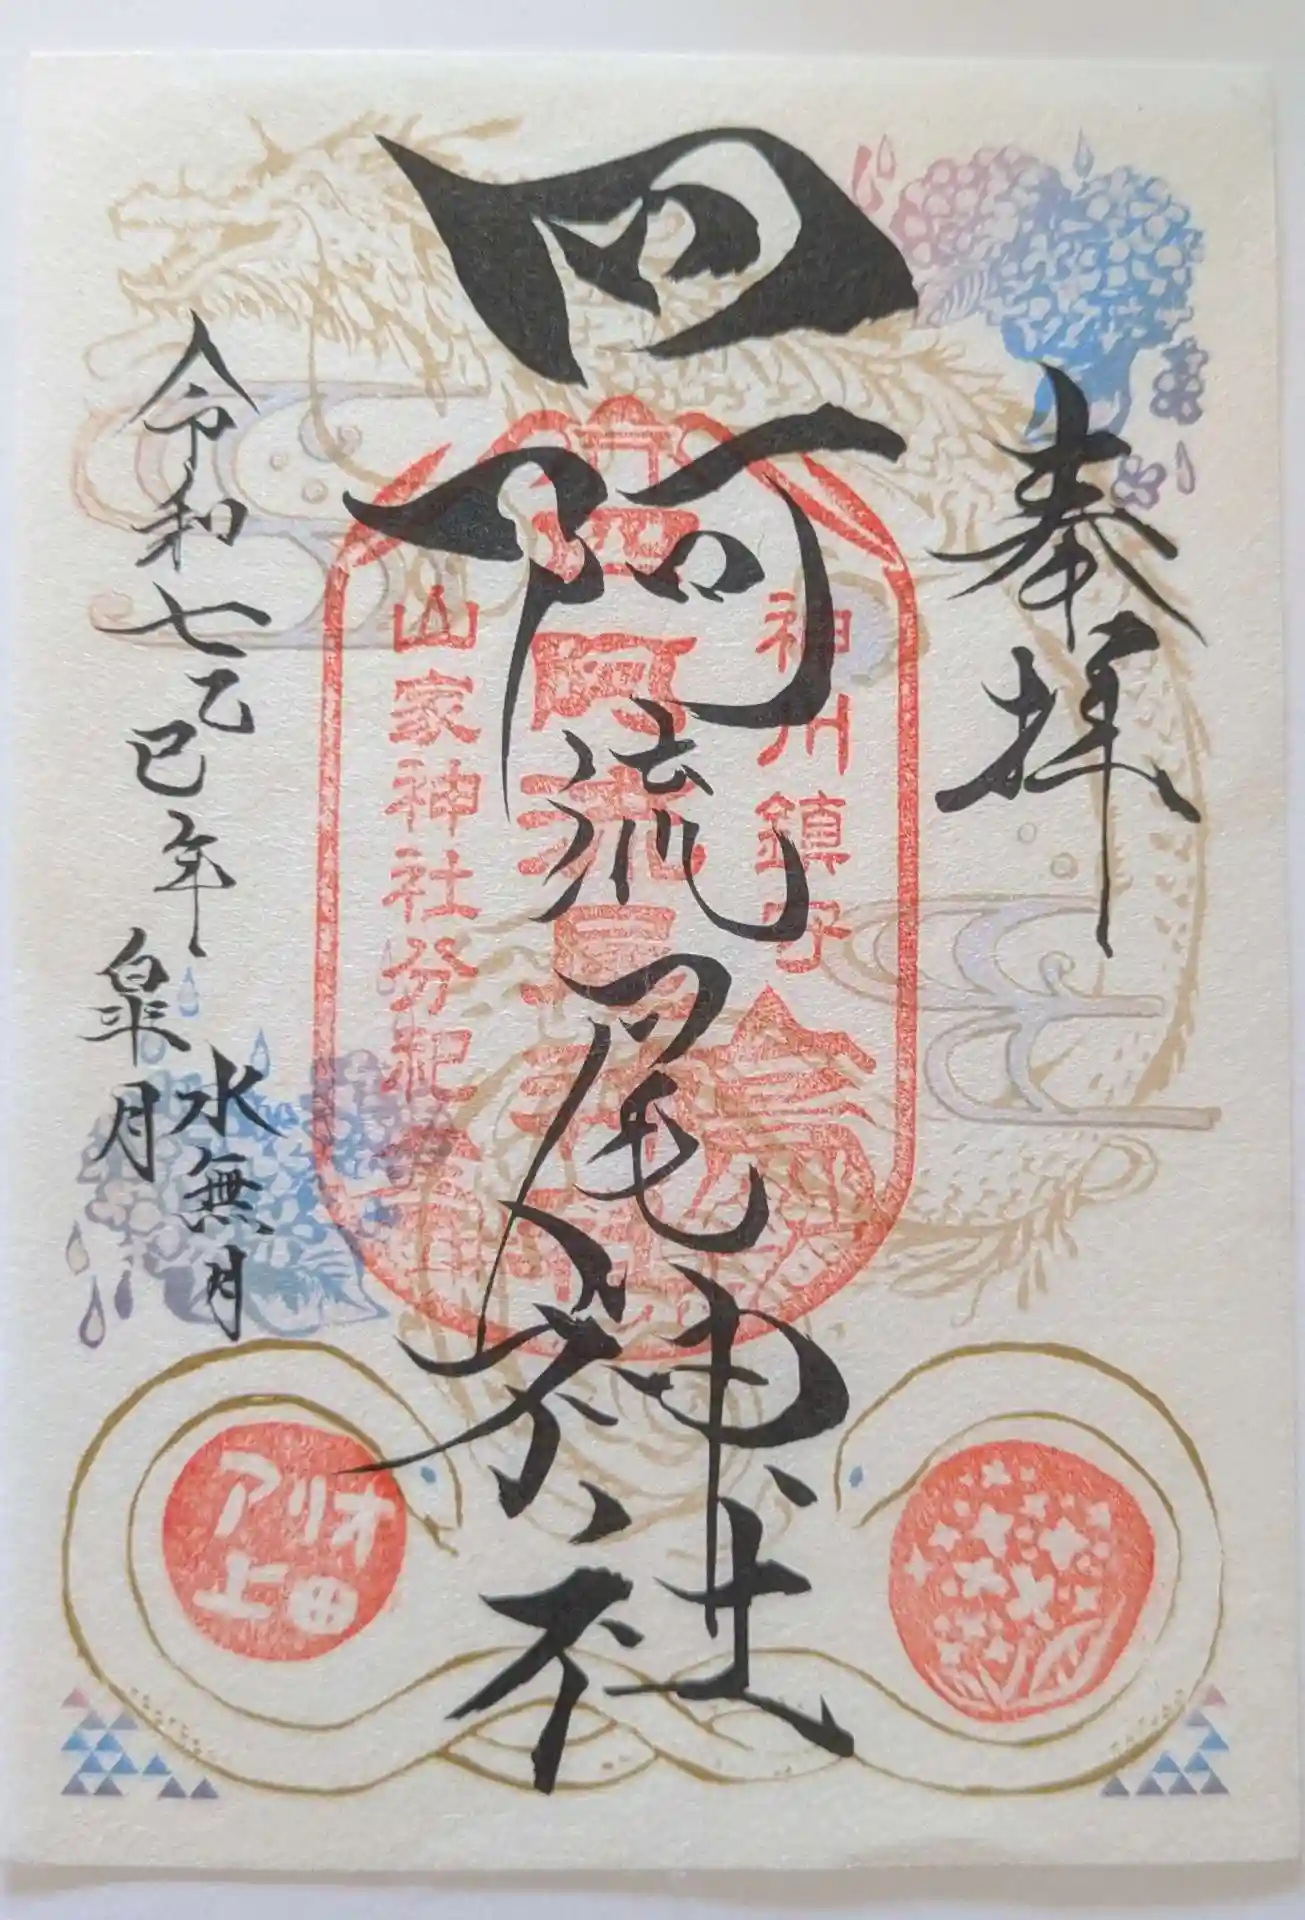 奉拝
四阿流尾神社
神川鎮守
四阿流尾神社
山家神社分祀
令和七乙巳年
水無月
皐月
アリオ
上田